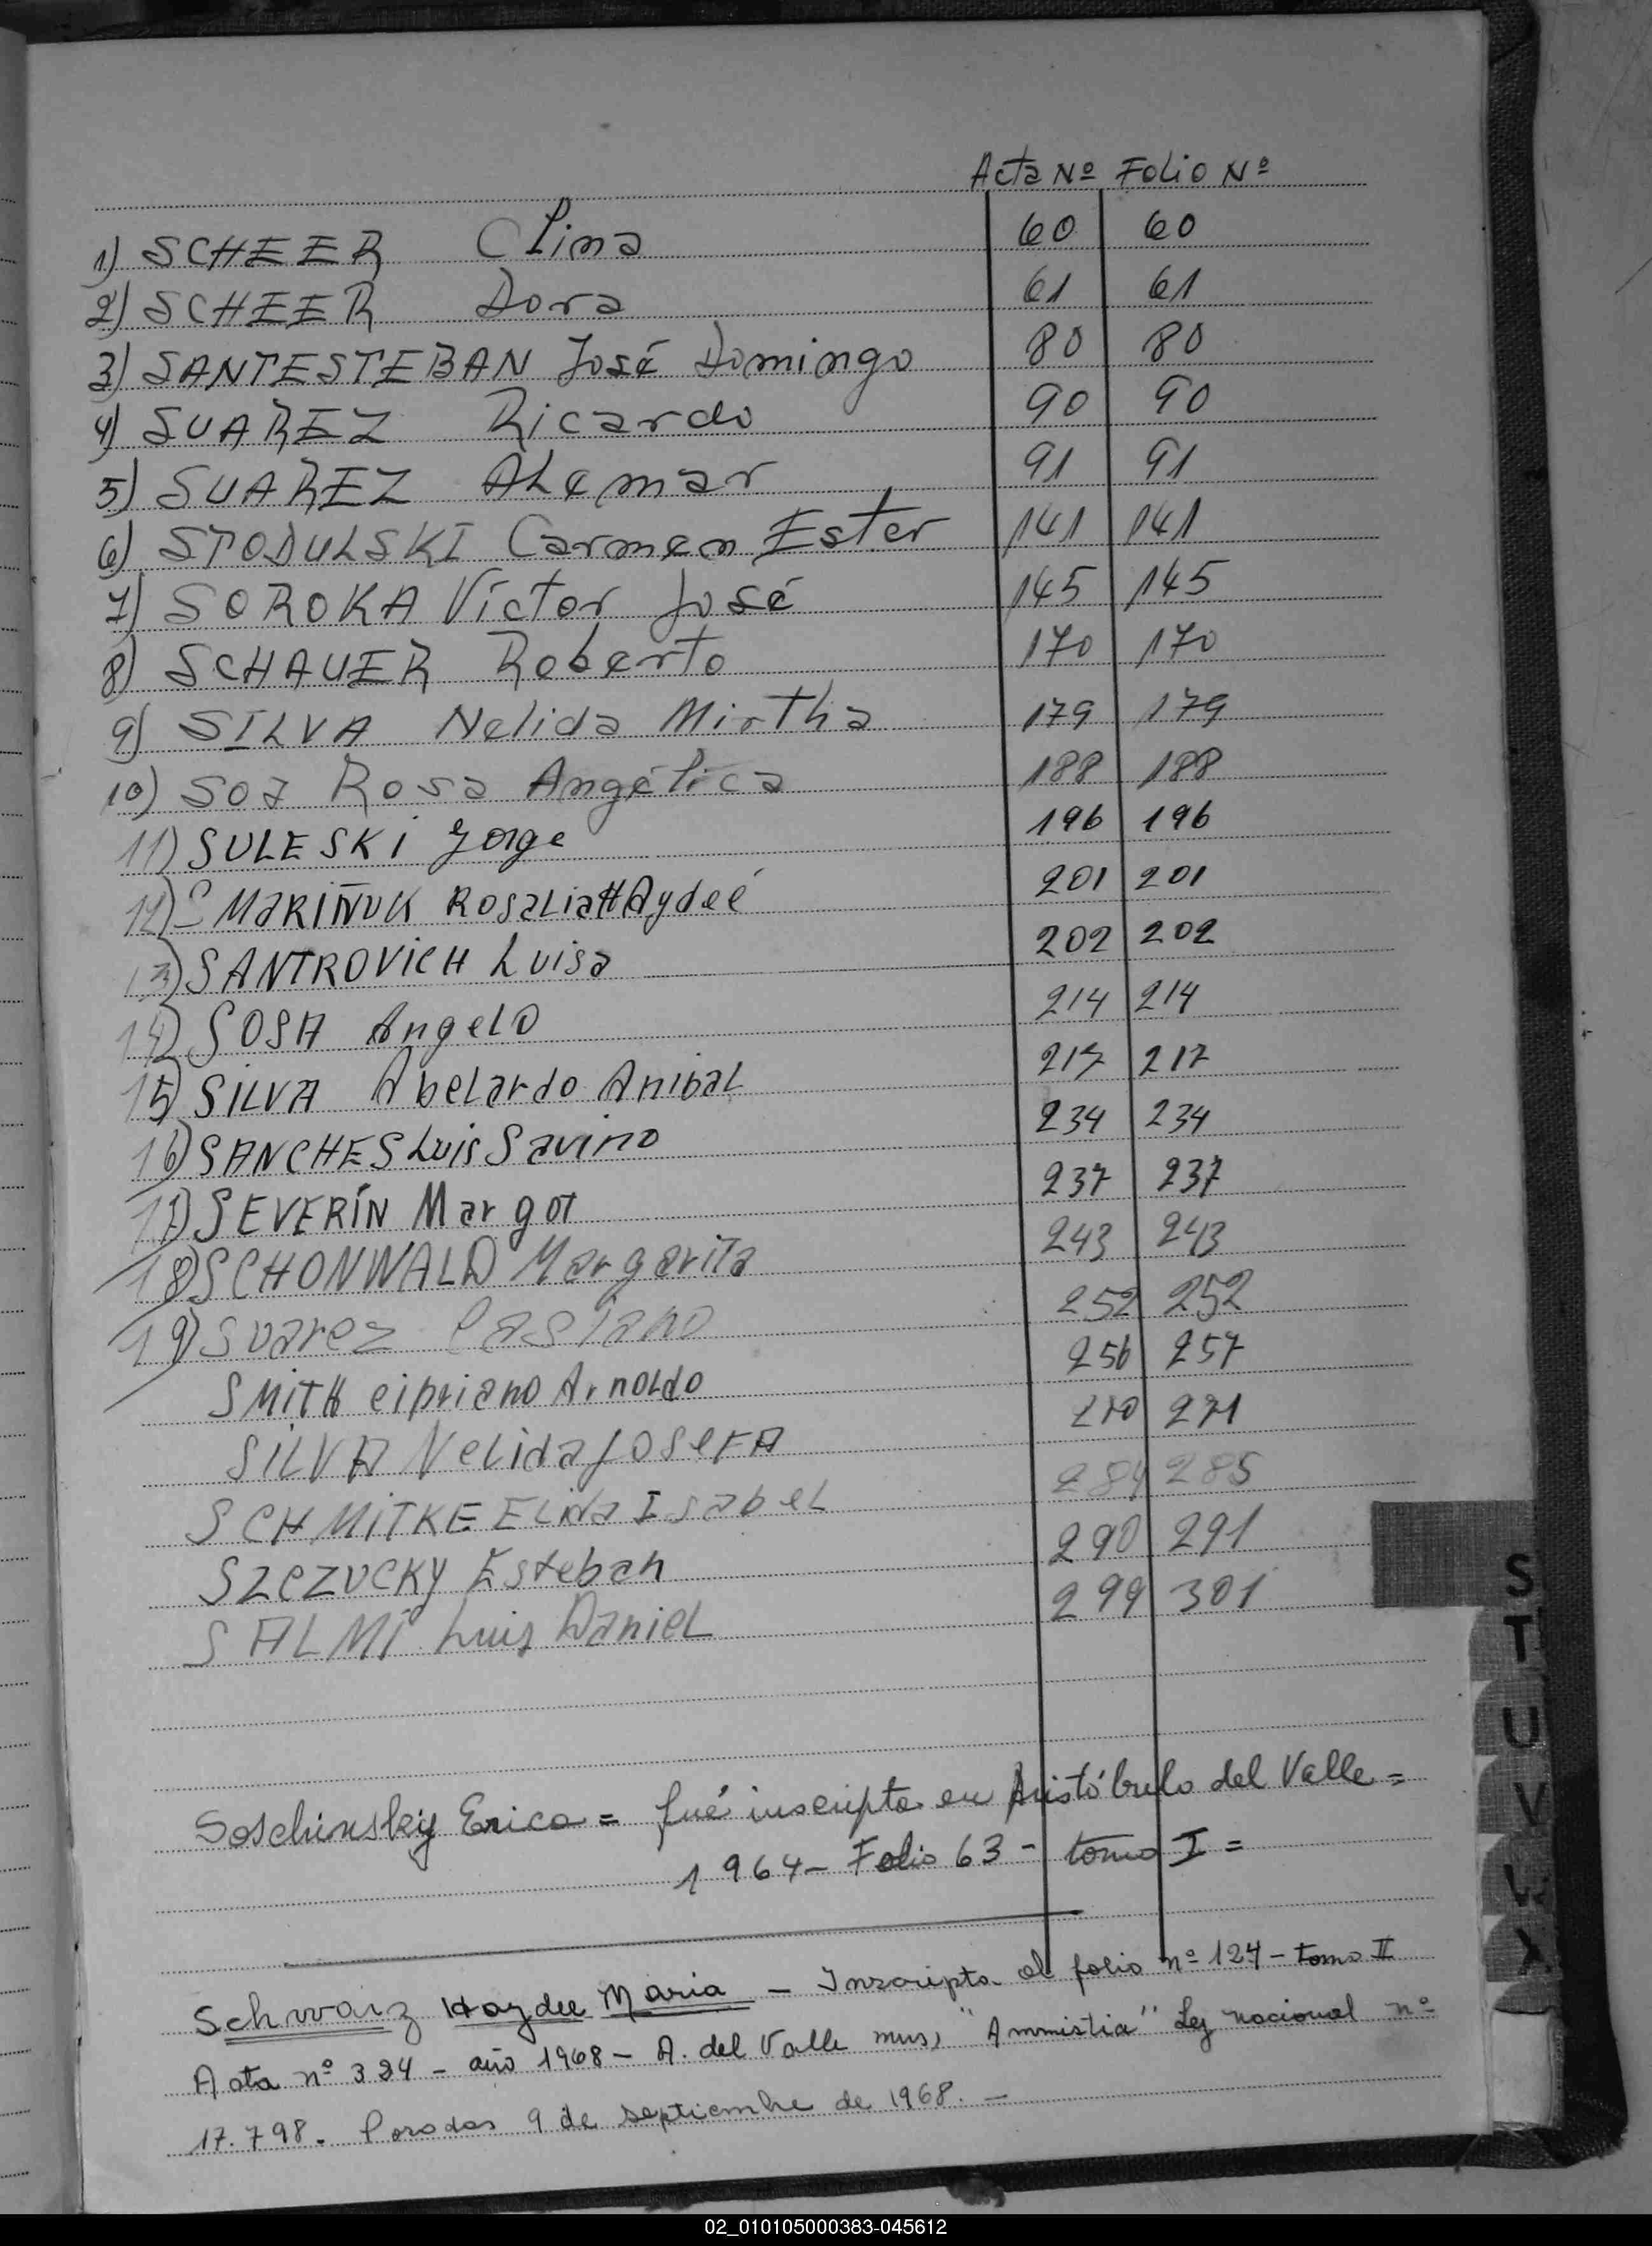 Acta Nº Folio Nº
1) SCHEER Clima 60 60
2) SCHEER Dora 61 61
3) SANTESTEBAN José Domingo 80 80
4) SUAREZ Ricardo 90 90
5) SUAREZ ALemar 91 91
6) STODULSKI Carmen Ester 141 141
7) SOROKA Víctor José 145 145
8) SCHAUER Roberto 170 170
9) SILVA Nelida Mirtha 179 179
10) SOZ Rosa Angélica 188 188
11) SULESKI Jorge 196 196
12) SMARIÑUK ROSALia HAydeé 201 201
13) SANTROVICH Luisa 202 202
14) SOSA Angelo 214 214
15) SILVA Abelardo Anibal 217 217
16) SANCHES Luis Savino 234 234
17) SEVERÍN Margot 237 237
18) SCHONWALD Margarita 243 243
19) Suarez Casiano 252 252
SMITH cipriano Arnoldo 256 257
SILVA Nelida JOSEFA 270 271
SCHMITKE ELida Isabel 284 285
SZCZUCKY Esteban 290 291
SALMI Luis Daniel 299 301
Soschinskij Erica = fué inscripta en Aristóbulo del Valle =
1964 - Folio 63 - tomo I =
Schwarz Haydee Maria - Inscripta al folio nº 124 - tomo II
Acta nº 324 - año 1968 - A. del Valle mns, "Ammistia" Ley nacional nº
17.798. Posadas 9 de septiembre de 1968. -
S
T
U
V
X
02_010105000383-045612